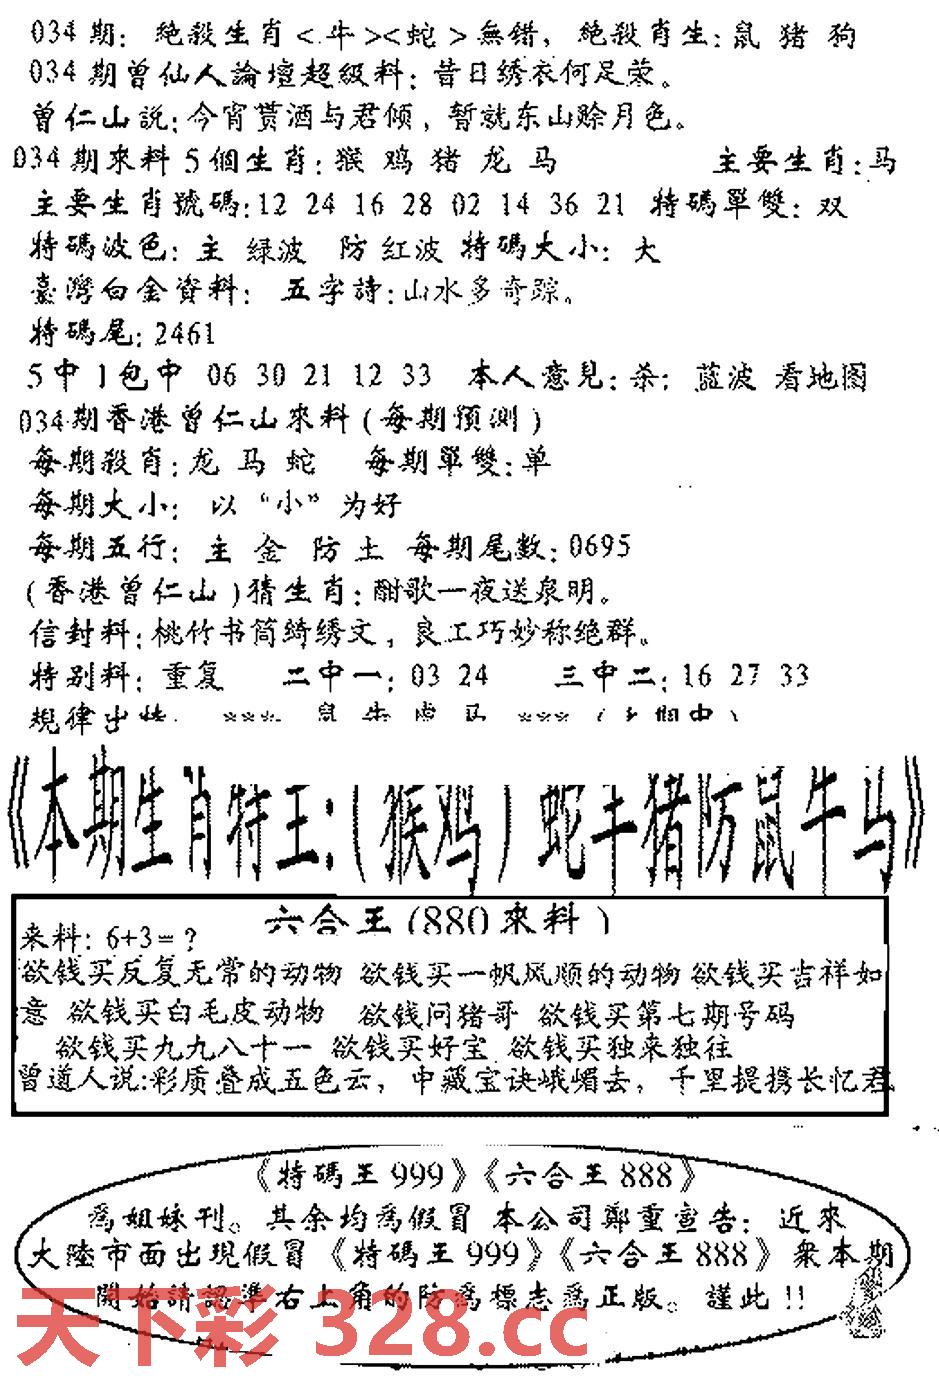 034期: 绝殺生肖<牛><蛇>無错, 绝殺肖生:鼠 猪 狗
034期曾仙人論壇超級料: 昔日绣衣何足荣。
曾仁山説:今宵贳酒与君倾, 暂就东山赊月色。
034期來料 5個生肖:猴 鸡 猪 龙 马 主要生肖:马
主要生肖號碼:12 24 16 28 02 14 36 21 特碼單雙: 双
特碼波色: 主 绿波 防 红波 特碼大小: 大
臺灣白金資料: 五字詩:山水多奇踪。
特碼尾: 2461
5中1包中 06 30 21 12 33 本人意見: 杀: 蓝波 看地图
034期香港曾仁山來料(每期預測)
每期殺肖:龙 马 蛇 每期單雙:单
每期大小: 以“小”为好
每期五行: 主 金 防 土 每期尾数:0695
(香港曾仁山)猜生肖:酣歌一夜送泉明。
信封料:桃竹书筒绮绣文, 良工巧妙称绝群。
特别料: 重复 二中一: 03 24 三中二:16 27 33
規律出特: *** 鼠 牛 虎 马 *** (上期中)
《本期生肖特王:(猴鸡)蛇羊猪防鼠牛马》
六合王(880來料)
来料: 6+3=?
欲钱买反复无常的动物 欲钱买一帆风顺的动物 欲钱买吉祥如
意 欲钱买白毛皮动物 欲钱问猪哥 欲钱买第七期号码
欲钱买九九八十一 欲钱买好宝 欲钱买独来独往
曾道人说:彩质叠成五色云, 中藏宝诀峨嵋去, 千里提携长忆君
《特碼王999》《六合王888》
爲姐妹刊。其余均爲假冒 本公司鄭重宣告: 近來
大陸市面出現假冒《特碼王999》《六合王888》衆本期
開始請認準右上角的防爲標志爲正版。謹此!!
天下彩 328.cc